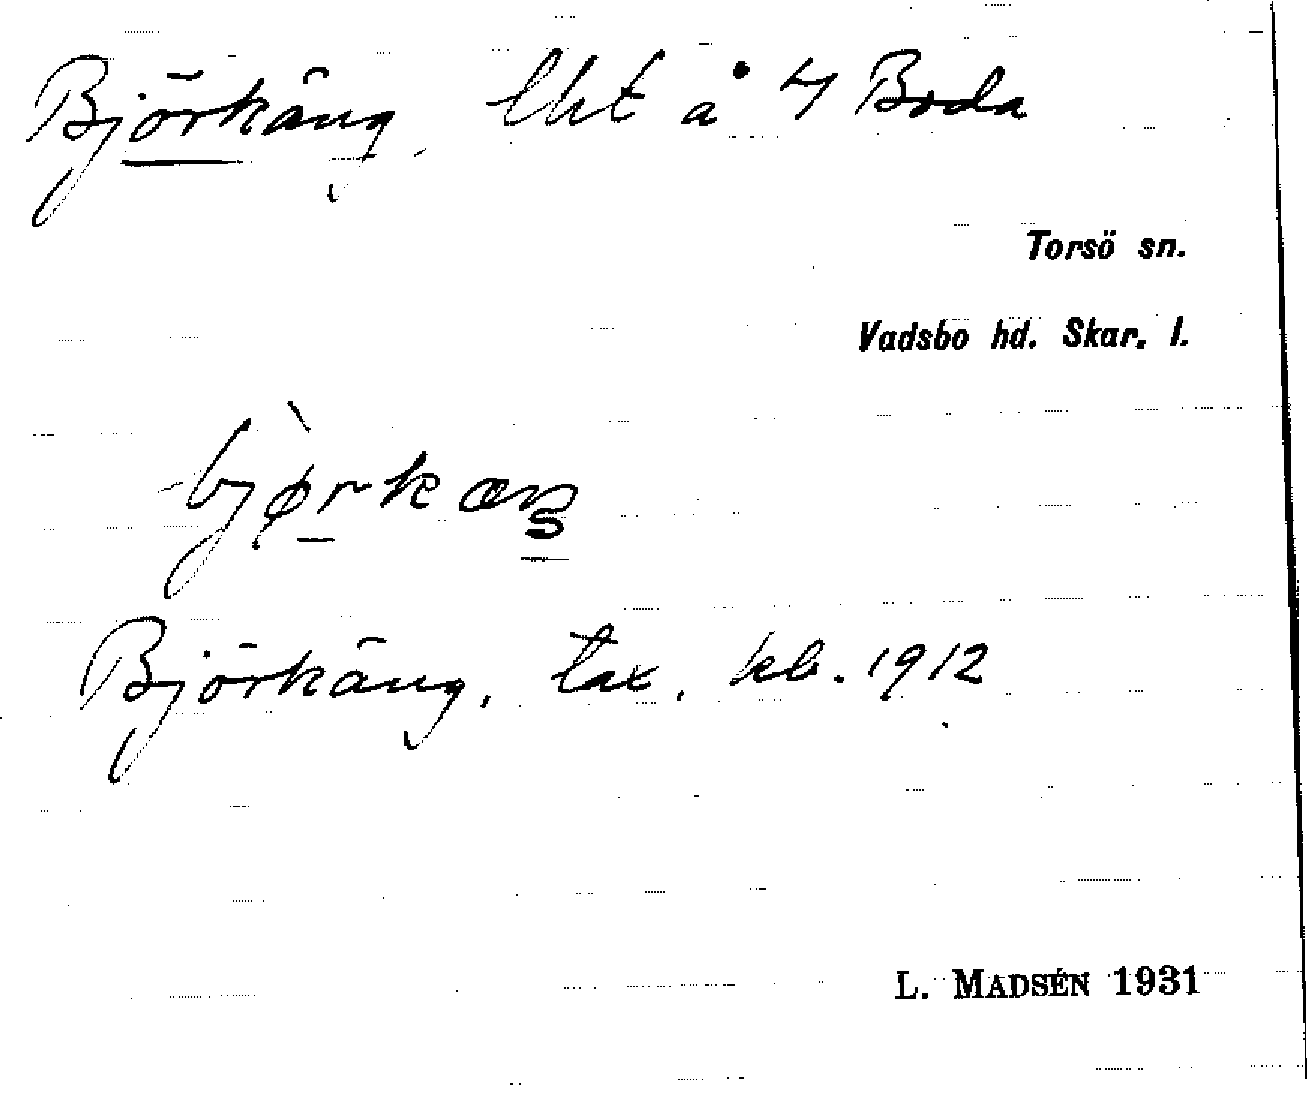 Björkäng, lht å 4 Boda
Torsö sn.
Vadsbo hd. Skar. l.
Björkäng, tax. kb. 1912
L. MADSÉN 1931